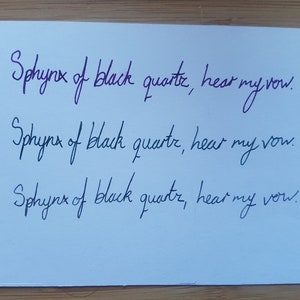 Sphynx of black quartz, hear my vow.
Sphynx of black quartz, hear my vow.
Sphynx of black quartz, hear my vow.